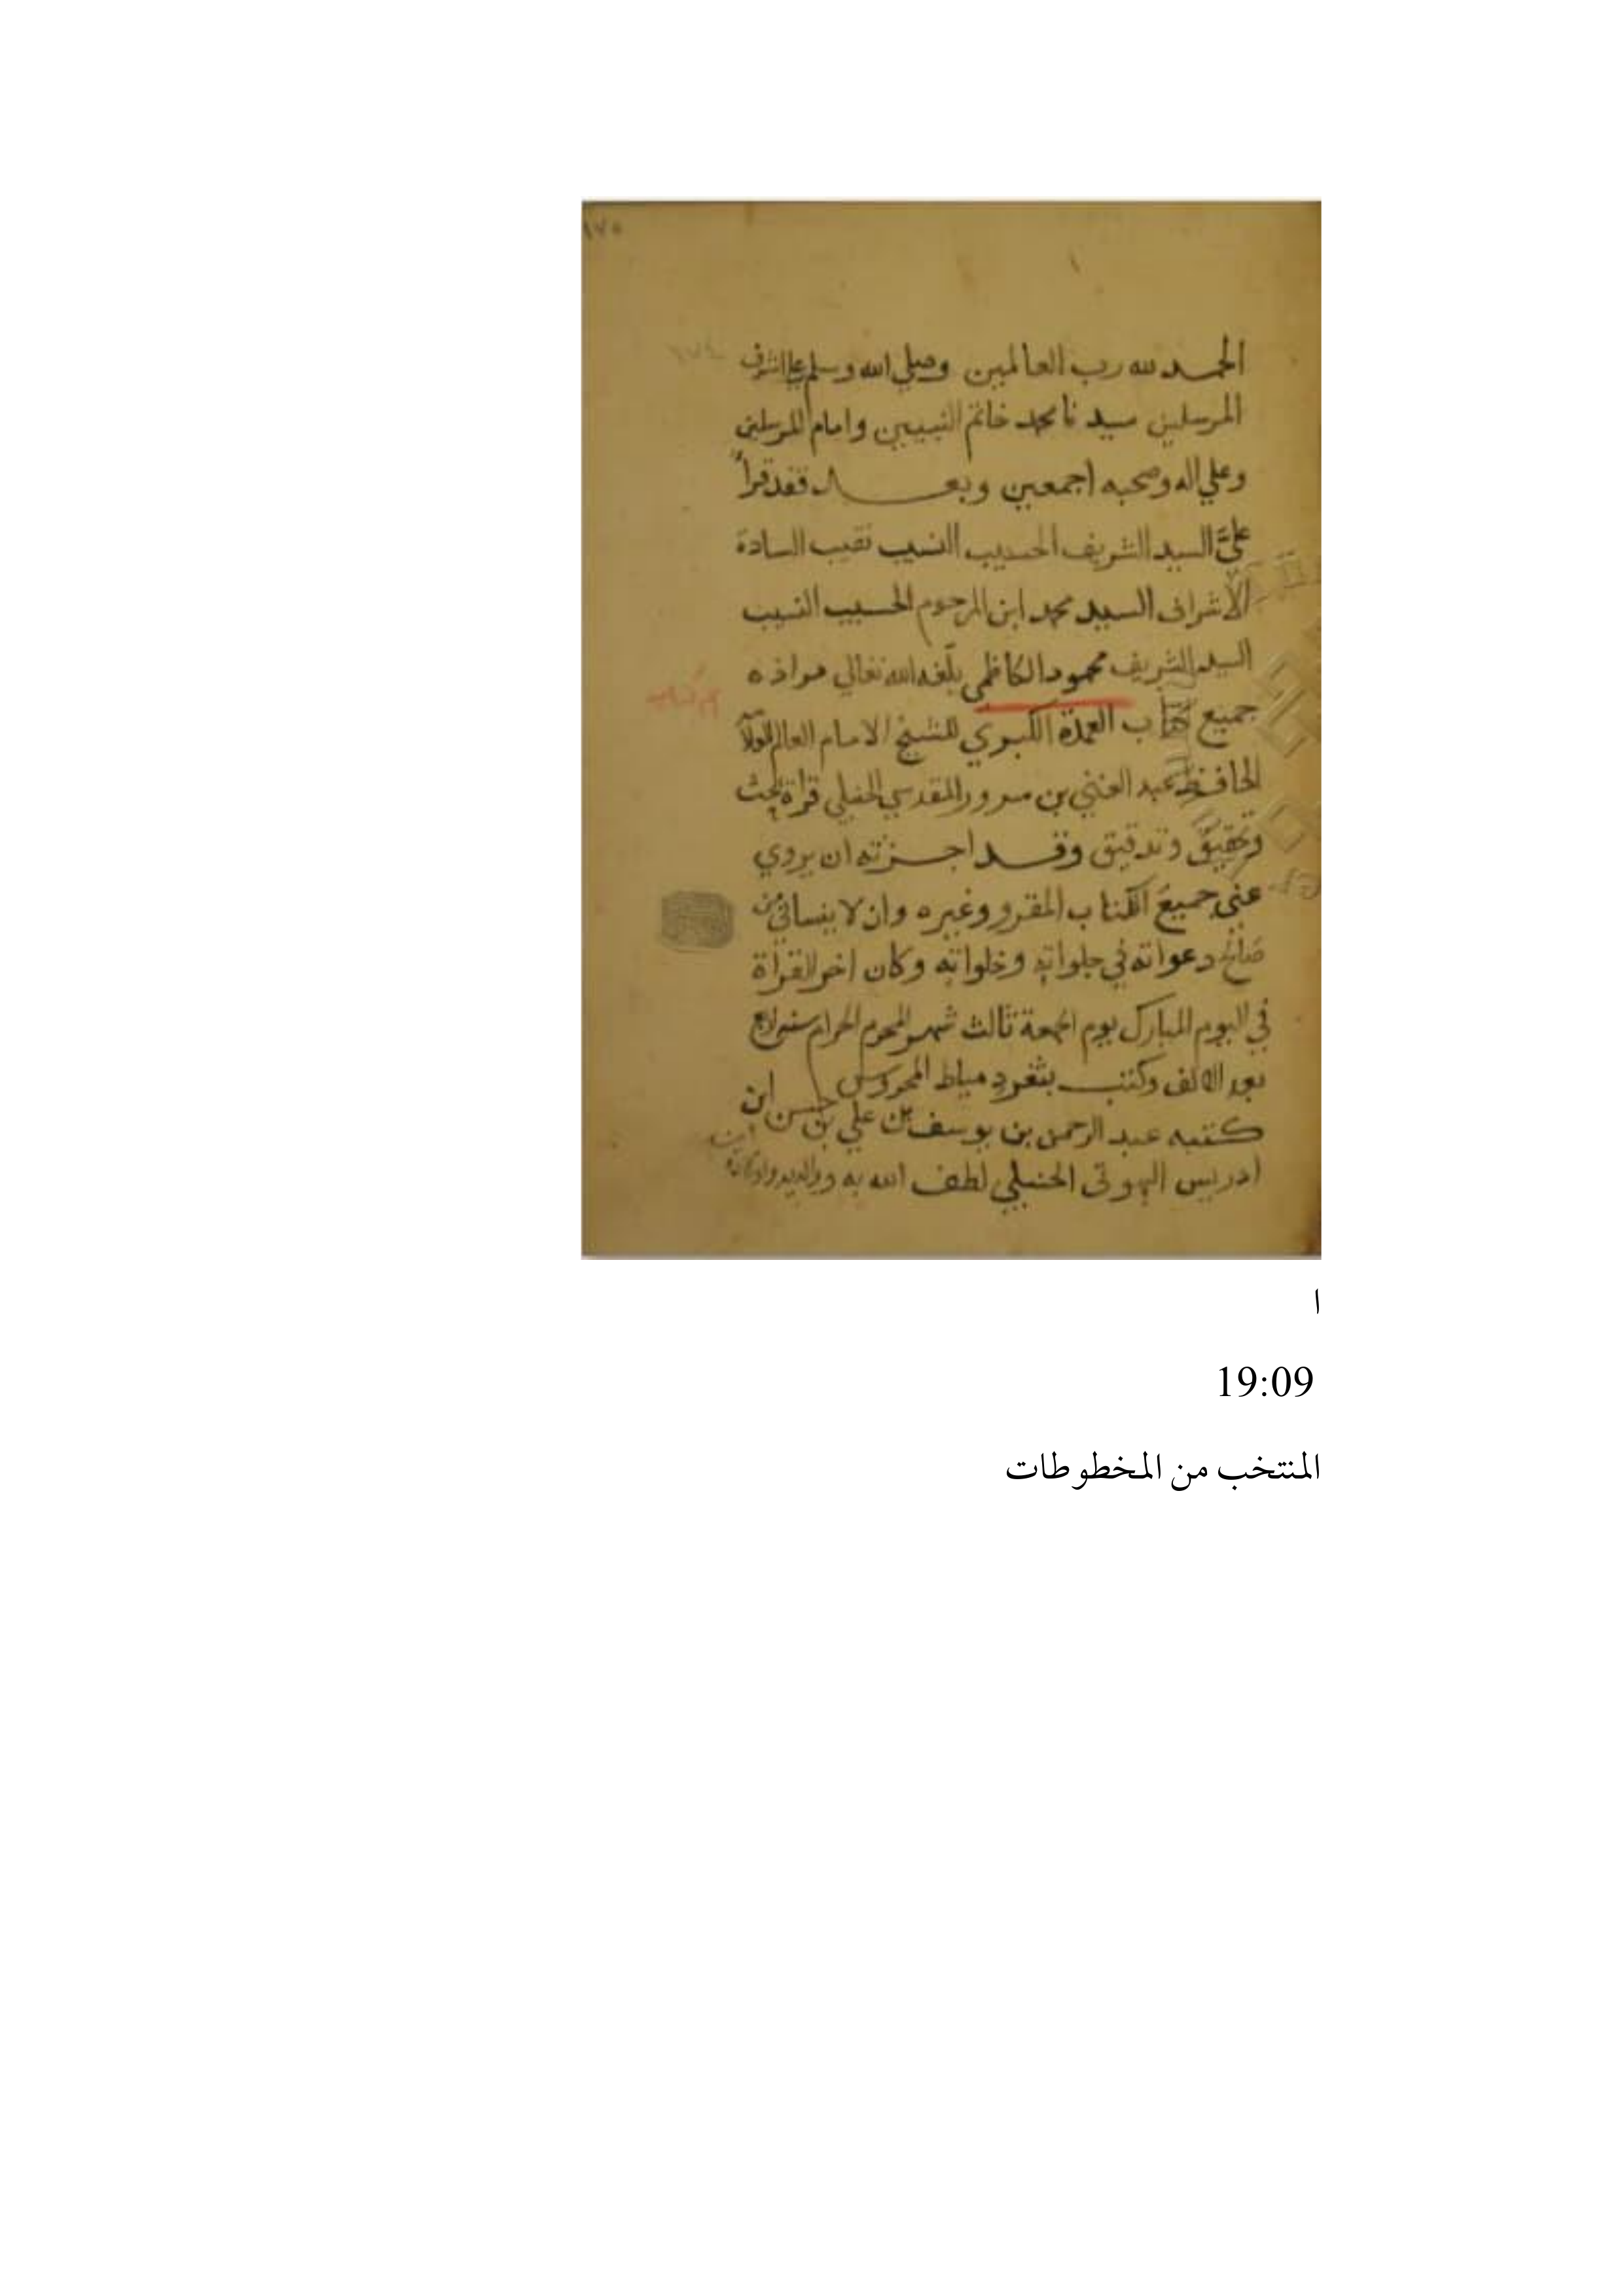 ١٧٥
الحمد لله رب العالمين وصلي الله وسلم علي اشرف
المرسلين سيدنا محمد خاتم النبيين وامام المرسلين
وعلي اله وصحبه اجمعين وبعد فقد قرأ
عليَّ السيد الشريف الحسيب النسيب نقيب السادة
الاشراف السيد محمد ابن المرحوم الحسيب النسيب
السيد الشريف محمود الكاظمي بلّغه الله تعالي مراده
جميع كتاب العمدة الكبري للشيخ الامام العالم
الحافظ عبد الغني بن سرور المقدسي الحنبلي قراة بحث
وتحقيق وتدقيق وقد اجزته ان يروي
عني جميع الكتاب المقرو وغيره وان لا ينساني من
صالح دعواته في جلواته وخلواته وكان اخر القراة
في اليوم المبارك يوم الجمعة ثالث شهر المحرم الحرام سنة
بعد الالف وكتب بثغر دمياط المحروس
كتبه عبد الرحمن بن يوسف بن علي بن حسن ابن
ادريس البهوتى الحنبلي لطف الله به ووالديه
ا
19:09
المنتخب من المخطوطات